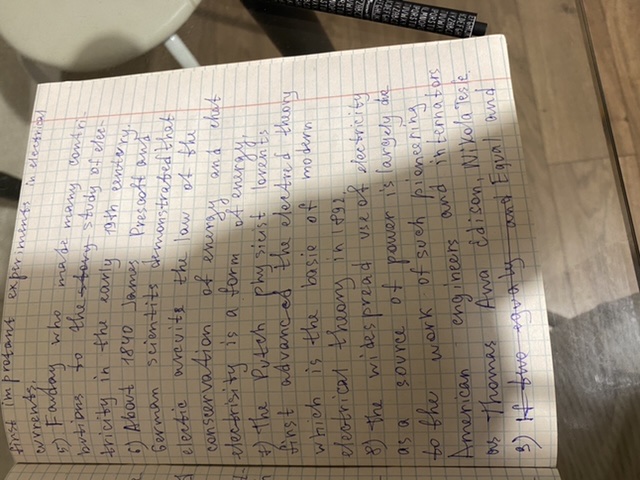 first improtant experiments in electrical
currents.
5) Faraday who made many contri-
butions to the study of elec-
tricity in the early 19th century.
6) About 1840 James Prescott and
German scientits demonstrated that
electic circuits the law of the
conservation of energy and that
electrisity is a form of energy.
7) the Dutch physicist Lorents
first advanced the electred theory
which is the basie of modern
electrical theory in 1892
8) the widespread use of electricity
as a source of power is largely due
to the work of such pioneering
American engineers and internators
as Thomas Ava Edison, Nikola Tesle
9) If two equaly and Equal and